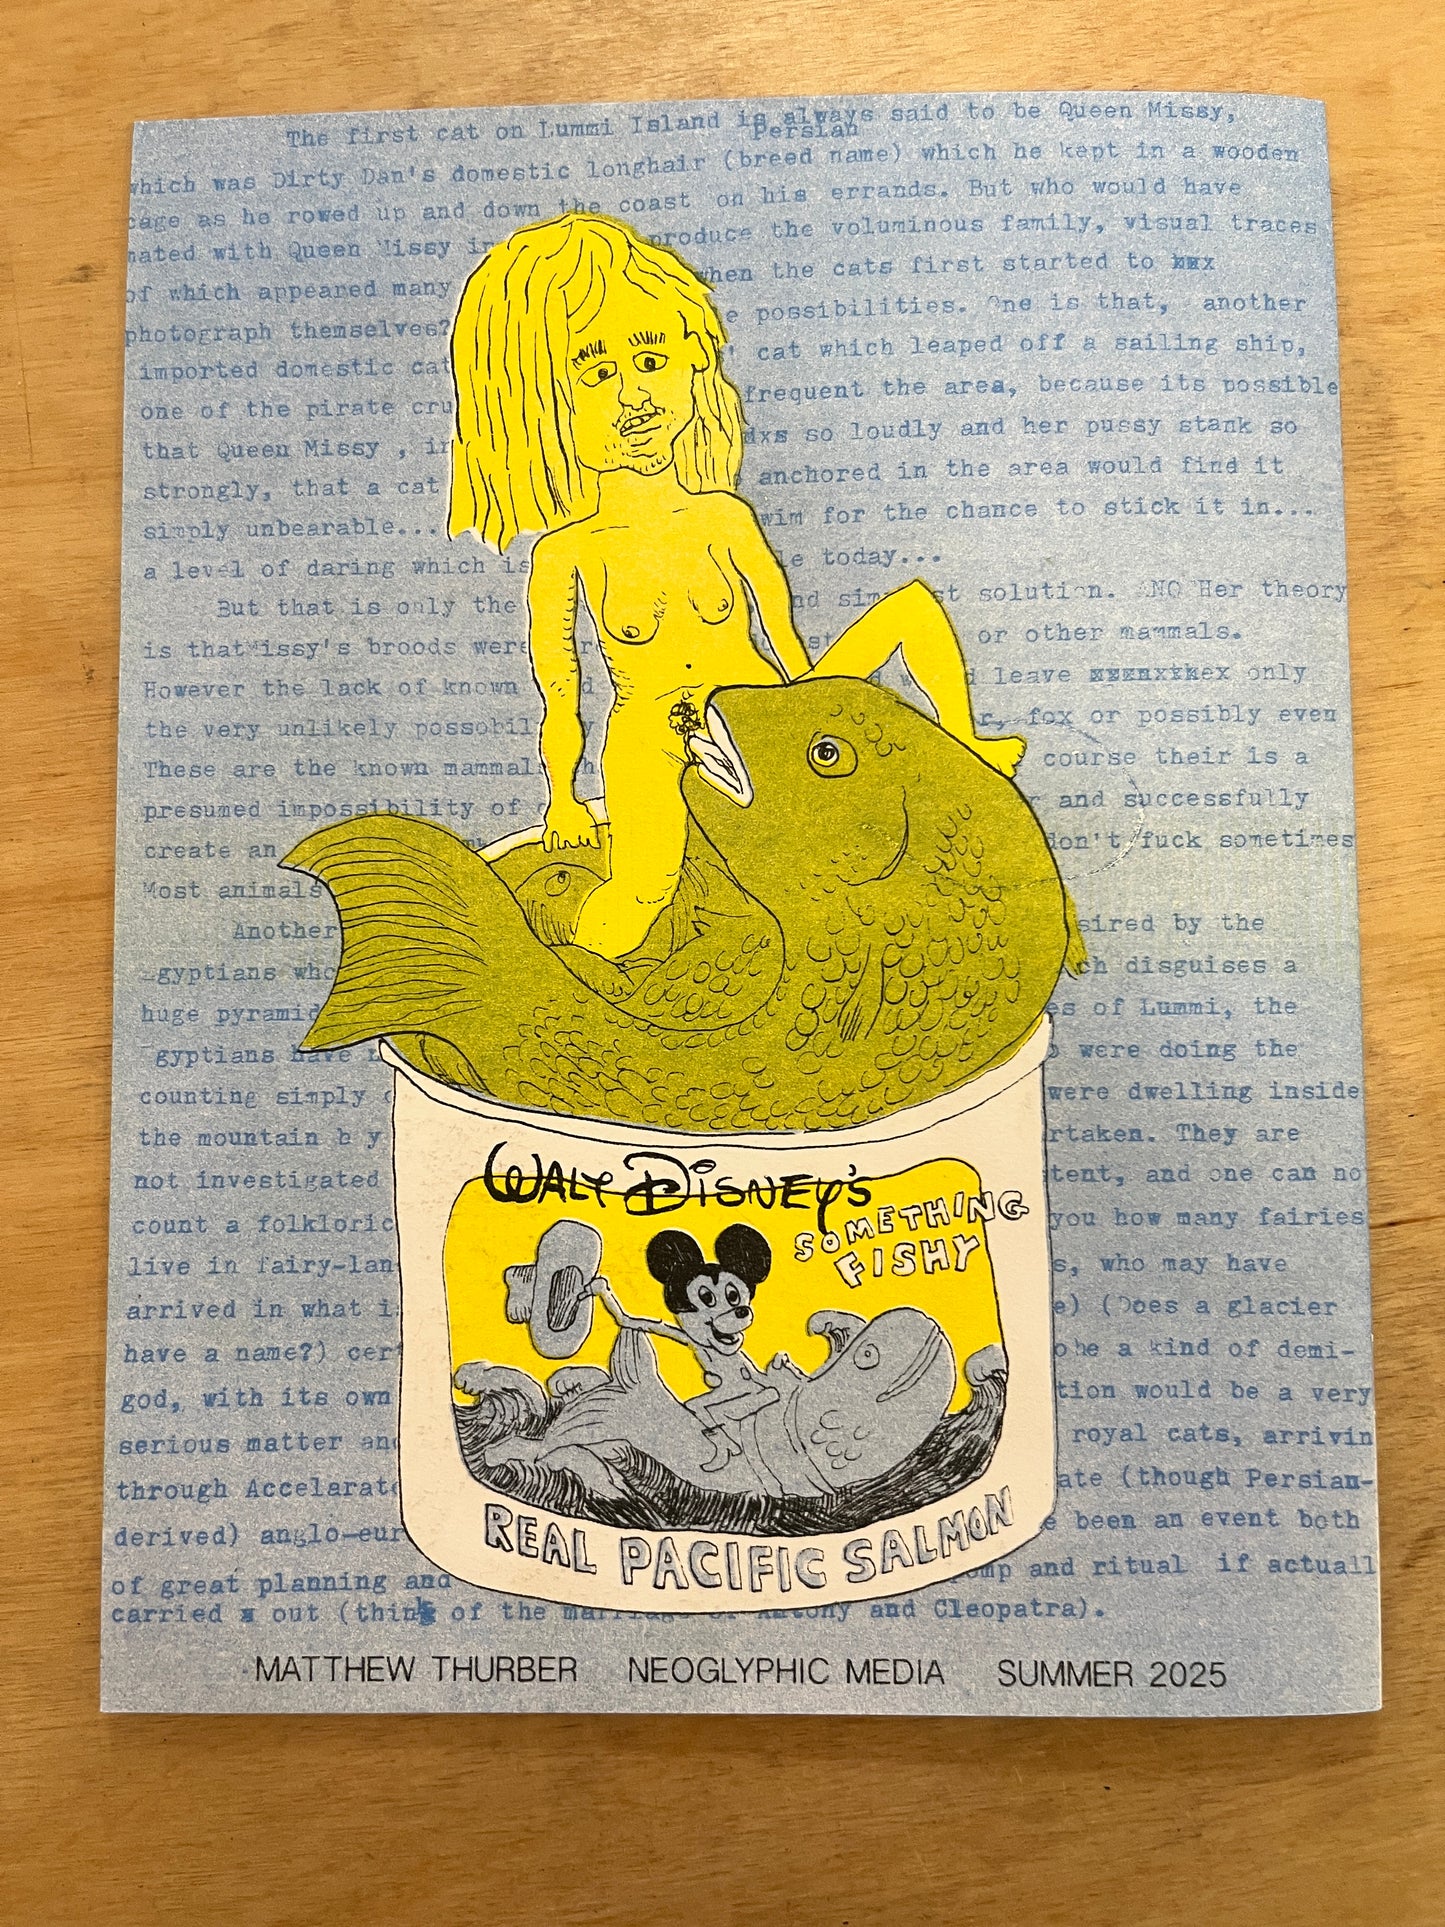 The first cat on Lummi Island is always said to be Queen Missy,
Persian
which was Dirty Dan's domestic longhair (breed name) which he kept in a wooden
cage as he rowed up and down the coast on his errands. But who would have
mated with Queen Missy in produce the voluminous family, visual traces
of which appeared many when the cats first started to xxx
photograph themselves? possibilities. One is that, another
imported domestic cat cat which leaped off a sailing ship,
one of the pirate cru frequent the area, because its possible
that Queen Missy , in so loudly and her pussy stank so
strongly, that a cat anchored in the area would find it
simply unbearable... wim for the chance to stick it in...
a level of daring which is le today...
But that is only the nd simplest solution. ANOTHer theory
is that Missy's broods were or other mammals.
However the lack of known d leave only
the very unlikely possobil r, fox or possibly even
These are the known mammal course their is a
presumed impossibility of and successfully
create an don't fuck sometimes
Most animals
Another sired by the
gyptians who ch disguises a
huge pyramid es of Lummi, the
gyptians have were doing the
counting simply were dwelling inside
the mountain b y rtaken. They are
not investigated tent, and one can no
count a folkloric you how many fairies
live in fairy-lan s, who may have
arrived in what i e) (Does a glacier
have a name?) cer be a kind of demi-
god, with its own tion would be a very
serious matter and royal cats, arrivin
through Accelarat ate (though Persian-
derived) anglo-eur e been an event both
of great planning and omp and ritual if actuall
carried x out (think of the marriage of Antony and Cleopatra).
WALT DISNEY'S
SOMETHING
FISHY
REAL PACIFIC SALMON
MATTHEW THURBER NEOGLYPHIC MEDIA SUMMER 2025